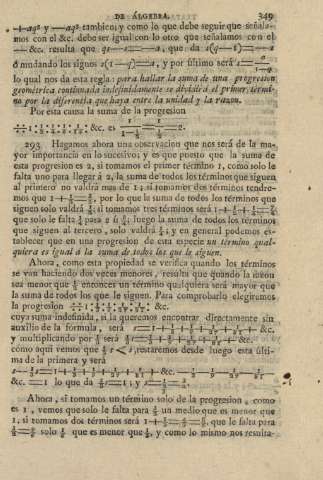 DE ÁLGEBRA. 349
—aqs y —aqs tambien; y como lo que debe seguir que señala-
mos con el &c. debe ser igual con lo otro que señalamos con el
— &c. resulta que qs—s=—a, que da s(q—1)=—a
ó mudando los signos s(1—q)=a, y por último será s=
lo qual nos da esta regla: para hallar la suma de una progresion
geométrica continuada indefinidamente se dividirá el primer térmi-
no por la diferencia que haya entre la unidad y la razon.
Por esta causa la suma de la progresion
&c. es =2.
293 Hagamos ahora una observacion que nos será de la ma-
yor importancia en lo sucesivo; y es que puesto que la suma de
esta progresion es 2, si tomamos el primer término 1, como solo le
falta uno para llegar á 2, la suma de todos los términos que siguen
al primero no valdrá mas de 1; si tomamos dos términos tendre-
mos que 1+½=3/2, por lo que la suma de todos los términos que
siguen solo valdrá ½; si tomamos tres términos será 1+½+¼=
que solo le falta ¼ para 2 ó luego la suma de todos los términos
que siguen al tercero, solo valdrá ¼; y en general podemos es-
tablecer que en una progresion de esta especie un término qual-
quiera es igual á la suma de todos los que le siguen.
Ahora, como esta propiedad se verifica quando los términos
se van haciendo dos veces menores, resulta que quando la razon
sea menor que ½ entonces un término qualquiera será mayor que
la suma de todos los que le siguen. Para comprobarlo elegiremos
la progresion &c.
cuya suma indefinida, si la queremos encontrar directamente sin
auxilio de la fórmula, será s=1+ &c.
y multiplicando por será &c.
como aquí vemos que s < s, restaremos desde luego esta últi-
ma de la primera y será
&c.
&c. =1 lo que da =1; y s=
Ahora, si tomamos un término solo de la progresion, como
es 1, vemos que solo le falta para ½ un medio que es menor que
1, si tomamos dos términos será 1+ que le falta para
solo que es menor que y como lo mismo nos resulta-